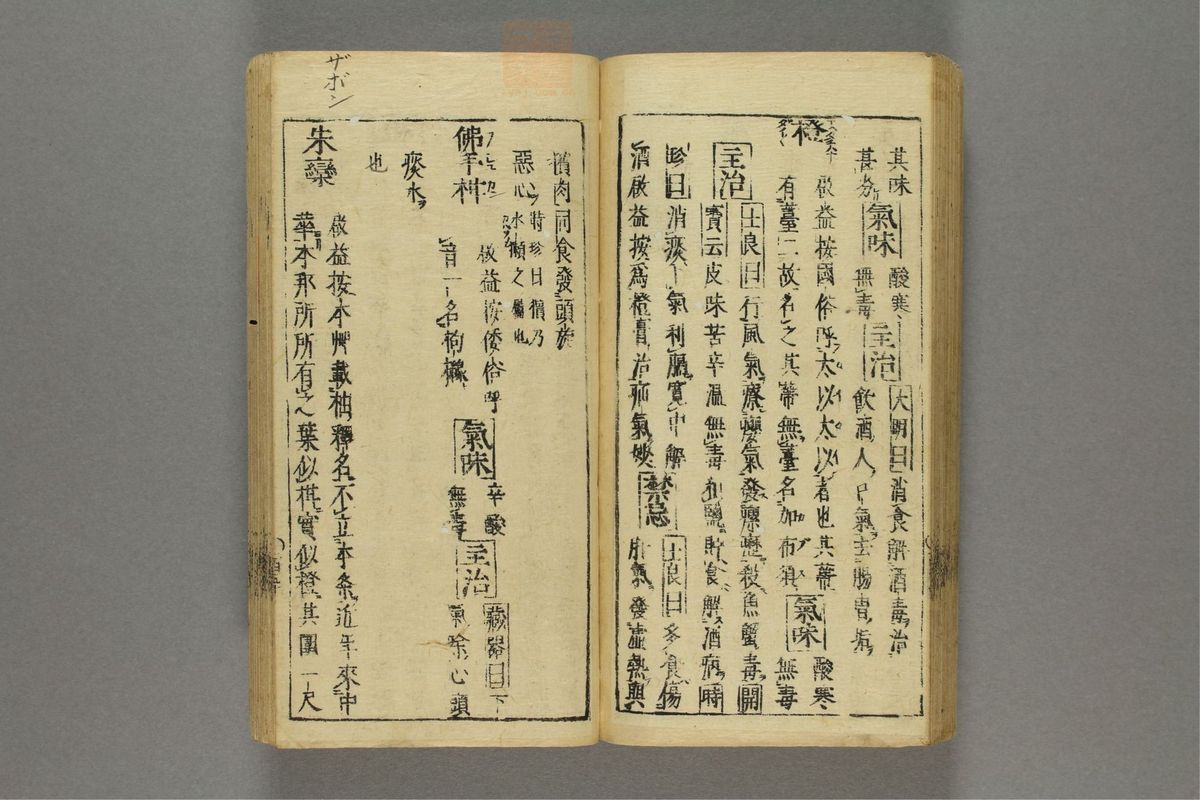 其味 酸寒 大明曰 消食解酒毒治
甚 氣味 無毒 主治 飲酒人口氣
橙
啟益按國俗呼太以太以者也其蒂
有臺二故名之其蒂無臺名加布須 氣味 酸寒 無毒
主治 士良曰 行風氣療癭氣發瘰癧殺魚蟹毒 開
寶云皮味苦辛溫無毒和鹽貯食解酒病 時
珍曰 消痰下氣利膈寬中解
酒 啟益按爲橙膏治疝氣妙 禁忌 士良曰 多食傷
肝氣發虛熱與
肉同食發頭旋
惡心 時珍曰 乃
水 之屬也
佛手柑
啟益按倭俗呼
音一名枸櫞 氣味 辛酸 無毒 主治 藏器曰 下
氣除心頭
痰水
也
ザボン
朱欒
啟益按本艸載柚釋名不立本条近年來中
華本那所所有之葉似 實似橙其圍一尺